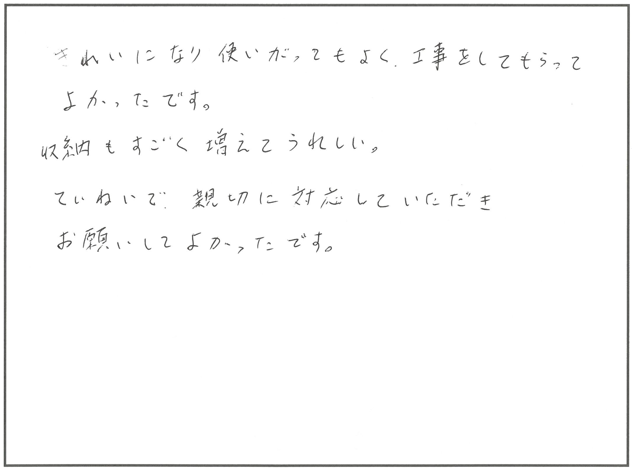 きれいになり使いがってもよく、工事をしてもらって
よかったです。
収納もすごく増えてうれしい。
ていねいで親切に対応していただき
お願いしてよかったです。